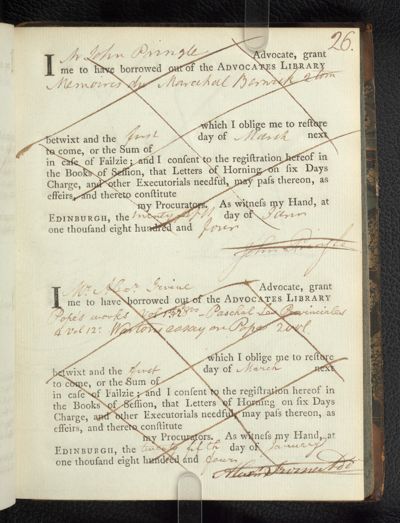 26.
I Mr John Pringle Advocate, grant
me to have borrowed out of the ADVOCATES LIBRARY
Memoires du Marechal Berwick 2 tom
which I oblige me to reſtore
betwixt and the first day of March next
to come, or the Sum of
in caſe of Failzie; and I conſent to the regiſtration hereof in
the Books of Seſſion, that Letters of Horning on ſix Days
Charge, and other Executorials needful, may paſs thereon, as
effeirs, and thereto conſtitute
my Procurators. As witneſs my Hand, at
EDINBURGH, the twenty fifth day of Janry
one thouſand eight hundred and four
John Pringle
I Mr Alexr Irvine Advocate, grant
me to have borrowed out of the ADVOCATES LIBRARY
Pope's works Vol 1st 3d Paschal Les Provinciales
& Vol 12. Warton's essay on Pope 2 vol
which I oblige me to reſtore
betwixt and the first day of March next
to come, or the Sum of
in caſe of Failzie; and I conſent to the regiſtration hereof in
the Books of Seſſion, that Letters of Horning on ſix Days
Charge, and other Executorials needful, may paſs thereon, as
effeirs, and thereto conſtitute
my Procurators. As witneſs my Hand, at
EDINBURGH, the twenty fifth day of January
one thouſand eight hundred and four
Alexr Irvine